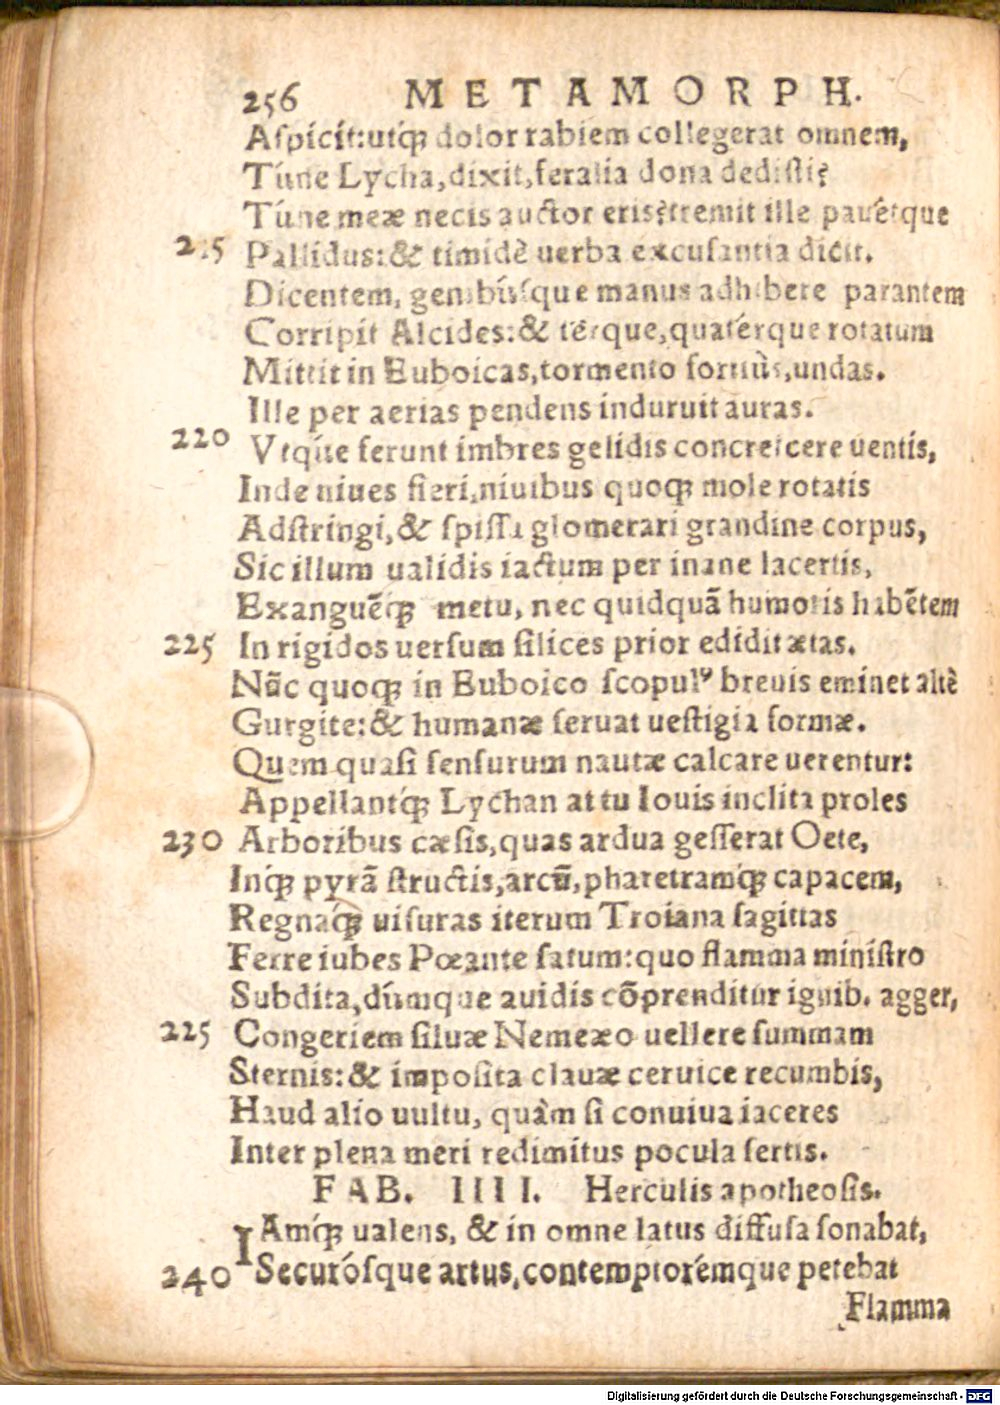 256 METAMORPH.
Aſpicit:utq́ꝫ dolor rabiem collegerat omnem,
Túne Lycha,dixit,feralia dona dediſti?
Túne meæ necis auctor eris?tremit ille pauétque
215 Pallidus:& timidè uerba excuſantia dicit.
Dicentem, genibúſque manus adhibere parantem
Corripit Alcides:& térque,quatérque rotatum
Mittit in Euboicas,tormento fortiùs,undas.
Ille per aerias pendens induruit auras.
220 Vtque ferunt imbres gelidis concreſcere uentis,
Inde niues fieri,niuibus quoqꝫ mole rotatis
Adſtringi,& ſpiſſa glomerari grandine corpus,
Sic illum ualidis iactum per inane lacertis,
Exanguẽq́ꝫ metu, nec quidquã humoris habẽtem
225 In rigidos uerſum ſilices prior edidit ætas.
Nũc quoqꝫ in Euboico ſcopulꝰ breuis eminet altè
Gurgite:& humanæ ſeruat ueſtigia formæ.
Quem quaſi ſenſurum nautæ calcare uerentur:
Appellantq́ꝫ Lychan at tu Iouis inclita proles
230 Arboribus cæſis,quas ardua geſſerat Oete,
Inq́ꝫ pyrã ſtructis,arcũ,pharetramq́ꝫ capacem,
Regnaq́ꝫ uiſuras iterum Troiana ſagittas
Ferre iubes Pœante ſatum:quo flamma miniſtro
Subdita,dúmque auidis cõprenditur ignib. agger,
225 Congeriem ſiluæ Nemeæo uellere ſummam
Sternis:& impoſita clauæ ceruice recumbis,
Haud alio uultu, quàm ſi conuiua iaceres
Inter plena meri redimitus pocula ſertis.
FAB. IIII. Herculis apotheoſis.
IAmq́ꝫ ualens, & in omne latus diffuſa ſonabat,
240 Securóſque artus,contemptorémque petebat
Flamma
Digitalisierung gefördert durch die Deutsche Forschungsgemeinschaft - DFG